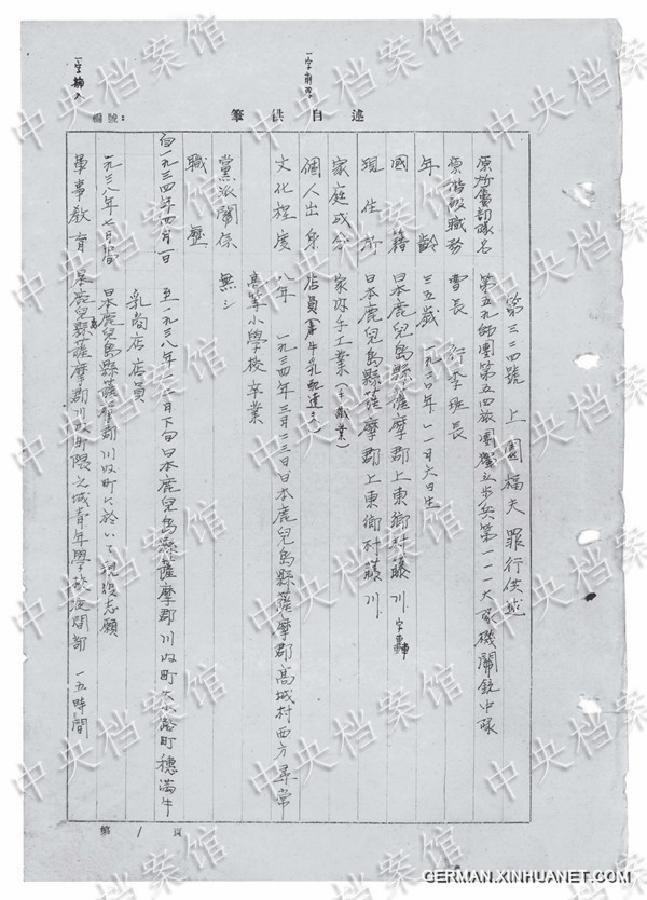 筆供自述
編號:
第三二四號 上園福夫罪行供述
原所屬部隊名 第五九師團第五四旅團獨立步兵第一一一大隊機關銃中隊
原階級職務 曹長 行李班長
年齡 三五歲 一九二〇年一一月六日生
國籍 日本鹿兒島縣薩摩郡上東鄉村藤川
現住所 日本鹿兒島縣薩摩郡上東鄉村藤川
家庭成分 家內手工業
個人出身 店員
文化程度 八年 一九三四年三月二三日日本鹿兒島縣薩摩郡高城村西方尋常
高等小學校卒業
黨派關係 無シ
職歷
自一九三四年四月一日 至一九三八年 月下旬日本鹿兒島縣薩摩郡川內町大小路町 牛
乳商店店員
一九三八年 日本鹿兒島縣薩摩郡川內町ニ於いて現役志願
軍事教育 薩摩郡川內 之城青年學校夜間部 一五時間
第 1 頁
中央档案馆
GERMAN.XINHUANET.COM